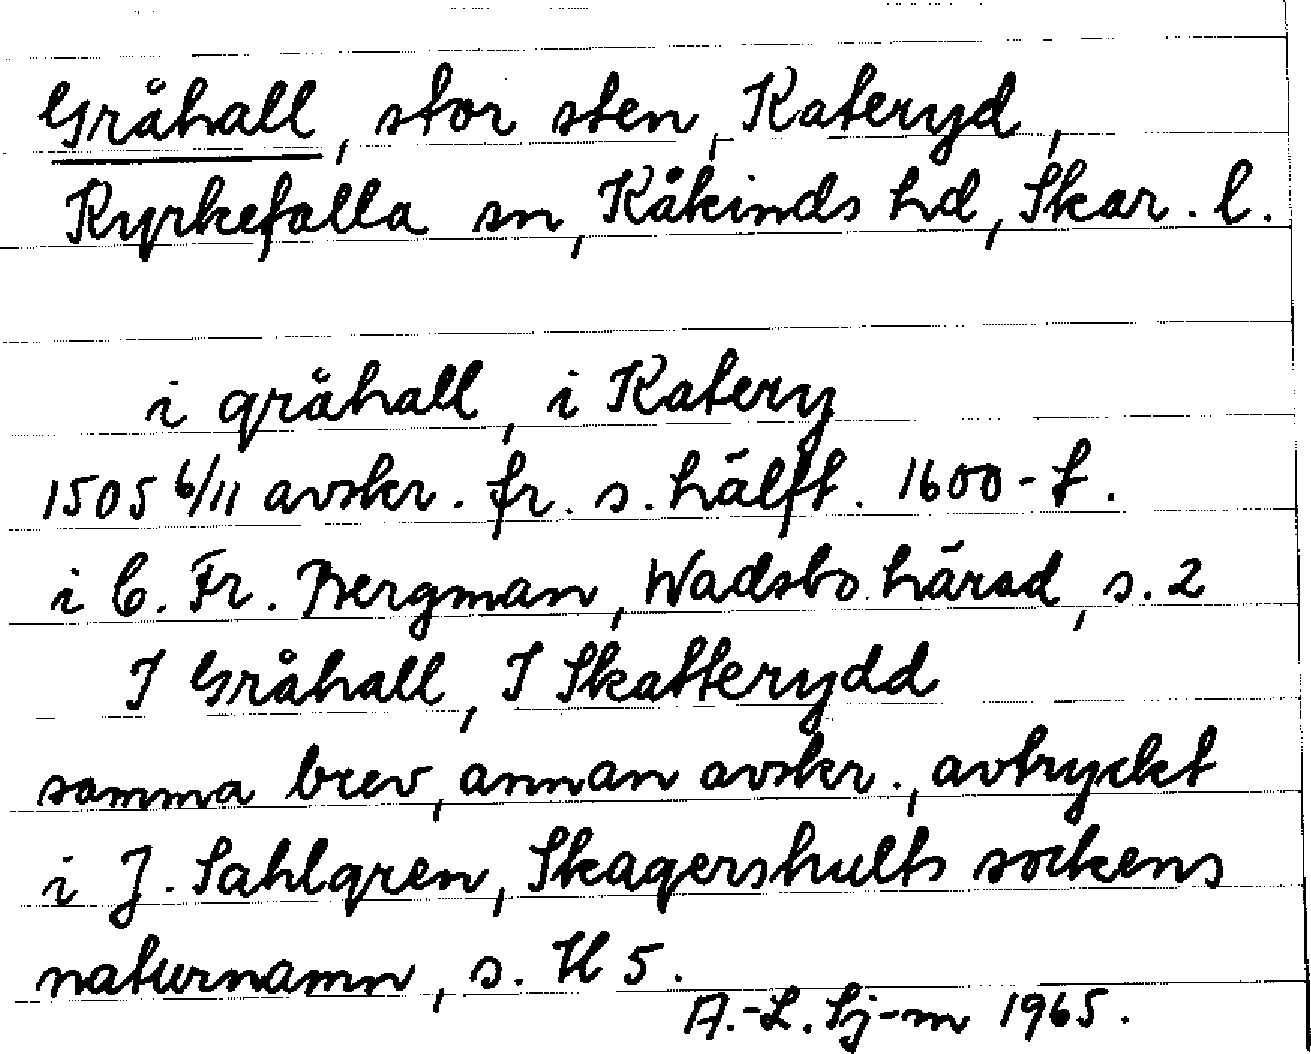 Gråhall, stor sten, Kateryd,
Kyrkefalla sn, Kåkinds hd, Skar. l.
i gråhall, i Katery
1505 6/11 avskr. fr. s. hälft. 1600-t.
i C. Fr. Bergman, Wadsbo härad, s. 2
I Gråhall, I Skatterydd
samma brev, annan avskr., avtryckt
i J. Sahlgren, Skagershults sockens
naturnamn, s. H 5.
A.-L. Sj-m 1965.